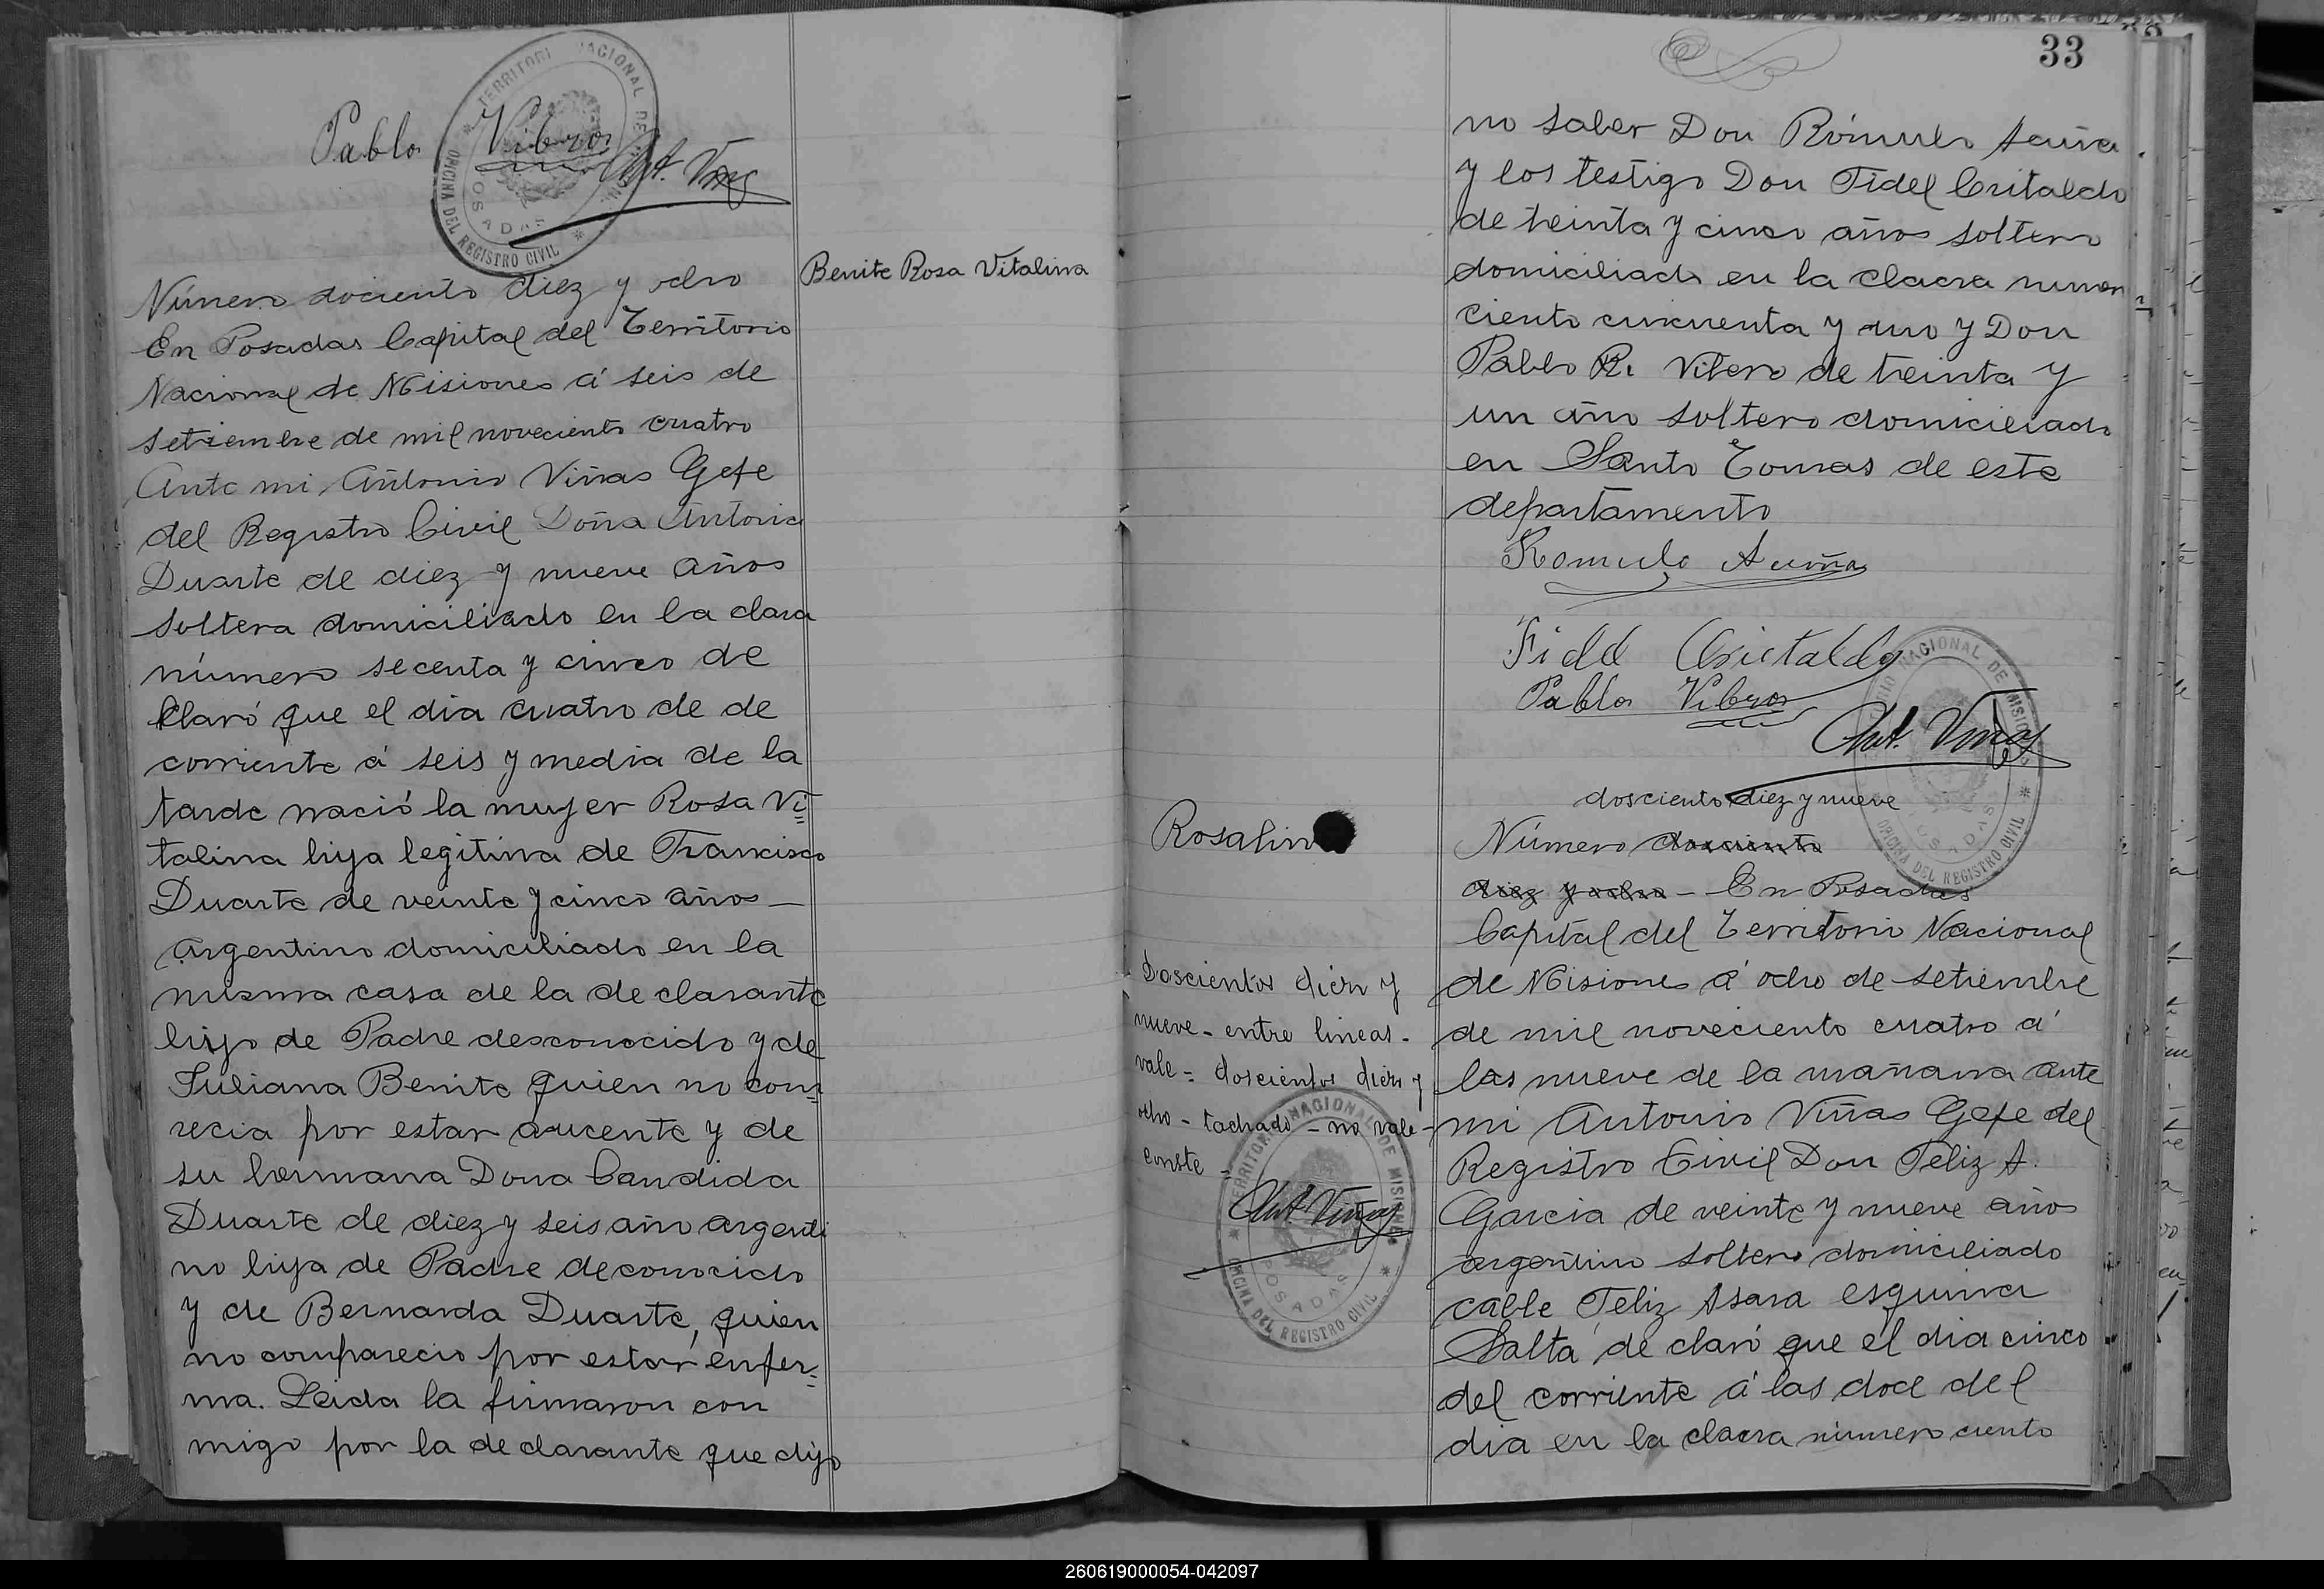 Pablo Vibros
Ant. Viñas
TERRITORIO NACIONAL DE MISIONES
POSADAS
OFICINA DEL REGISTRO CIVIL
Benite Rosa Vitalina
Número dociento diez y ocho
En Posadas Capital del Territorio
Nacional de Misiones á seis de
setiembre de mil noveciento cuatro
Ante mi Antonio Viñas Gefe
del Registro Civil Doña Antonia
Duarte de diez y nueve años
soltera domiciliado en la clara
número secenta y cinco de
claró que el dia cuatro de de
corriente á seis y media de la
tarde nació la mujer Rosa Vi=
talina hija legitima de Francisco
Duarte de veinte y cinco años —
argentino domiciliado en la
misma casa de la de clarante
hijo de Padre desconocido y de
Juliana Benite quien no com=
recia por estar aucente y de
su hermana Dona Candida
Duarte de diez y seis año argenti
no hija de Padre deconocido
y de Bernarda Duarte, quien
no comparecio por estar enfer=
ma. Leida la firmaron con
migo por la de clarante que dijo
33
no saber Don Rómulo Acuña
y los testigo Don Fidel Critaldo
de treinta y cinco años soltero
domiciliado en la clacra numero
ciento cincuenta y uno y Don
Pablo R. Vibero de treinta y
un año soltero domiciliado
en Santo Tomas de este
departamento
Romulo Acuña
Fidel Cristaldo
Pablo Vibros
Ant. Viñas
TERRITORIO NACIONAL DE MISIONES
POSADAS
OFICINA DEL REGISTRO CIVIL
Rosalin
dosciento diez y nueve
Número dosciento
diez y ocho – En Posadas
Capital del Territorio Nacional
de Misiones á ocho de setiembre
de mil noveciento cuatro á
las nueve de la mañana ante
mi Antonio Viñas Gefe del
Registro Civil Don Feliz A.
Garcia de veinte y nueve años
argentino soltero domiciliado
calle Feliz Asara esquina
Salta de claró que el dia cinco
del corriente á las doce del
dia en la clacra número ciento
Doscientos diez y
nueve - entre lineas -
vale = doscientos diez y
ocho - tachado - no vale -
conste =
Ant. Viñas
TERRITORIO NACIONAL DE MISIONES
POSADAS
OFICINA DEL REGISTRO CIVIL
260619000054-042097